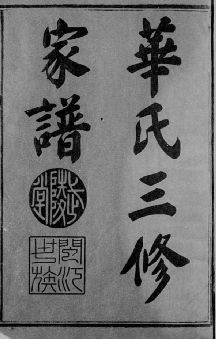 華氏三修
家譜